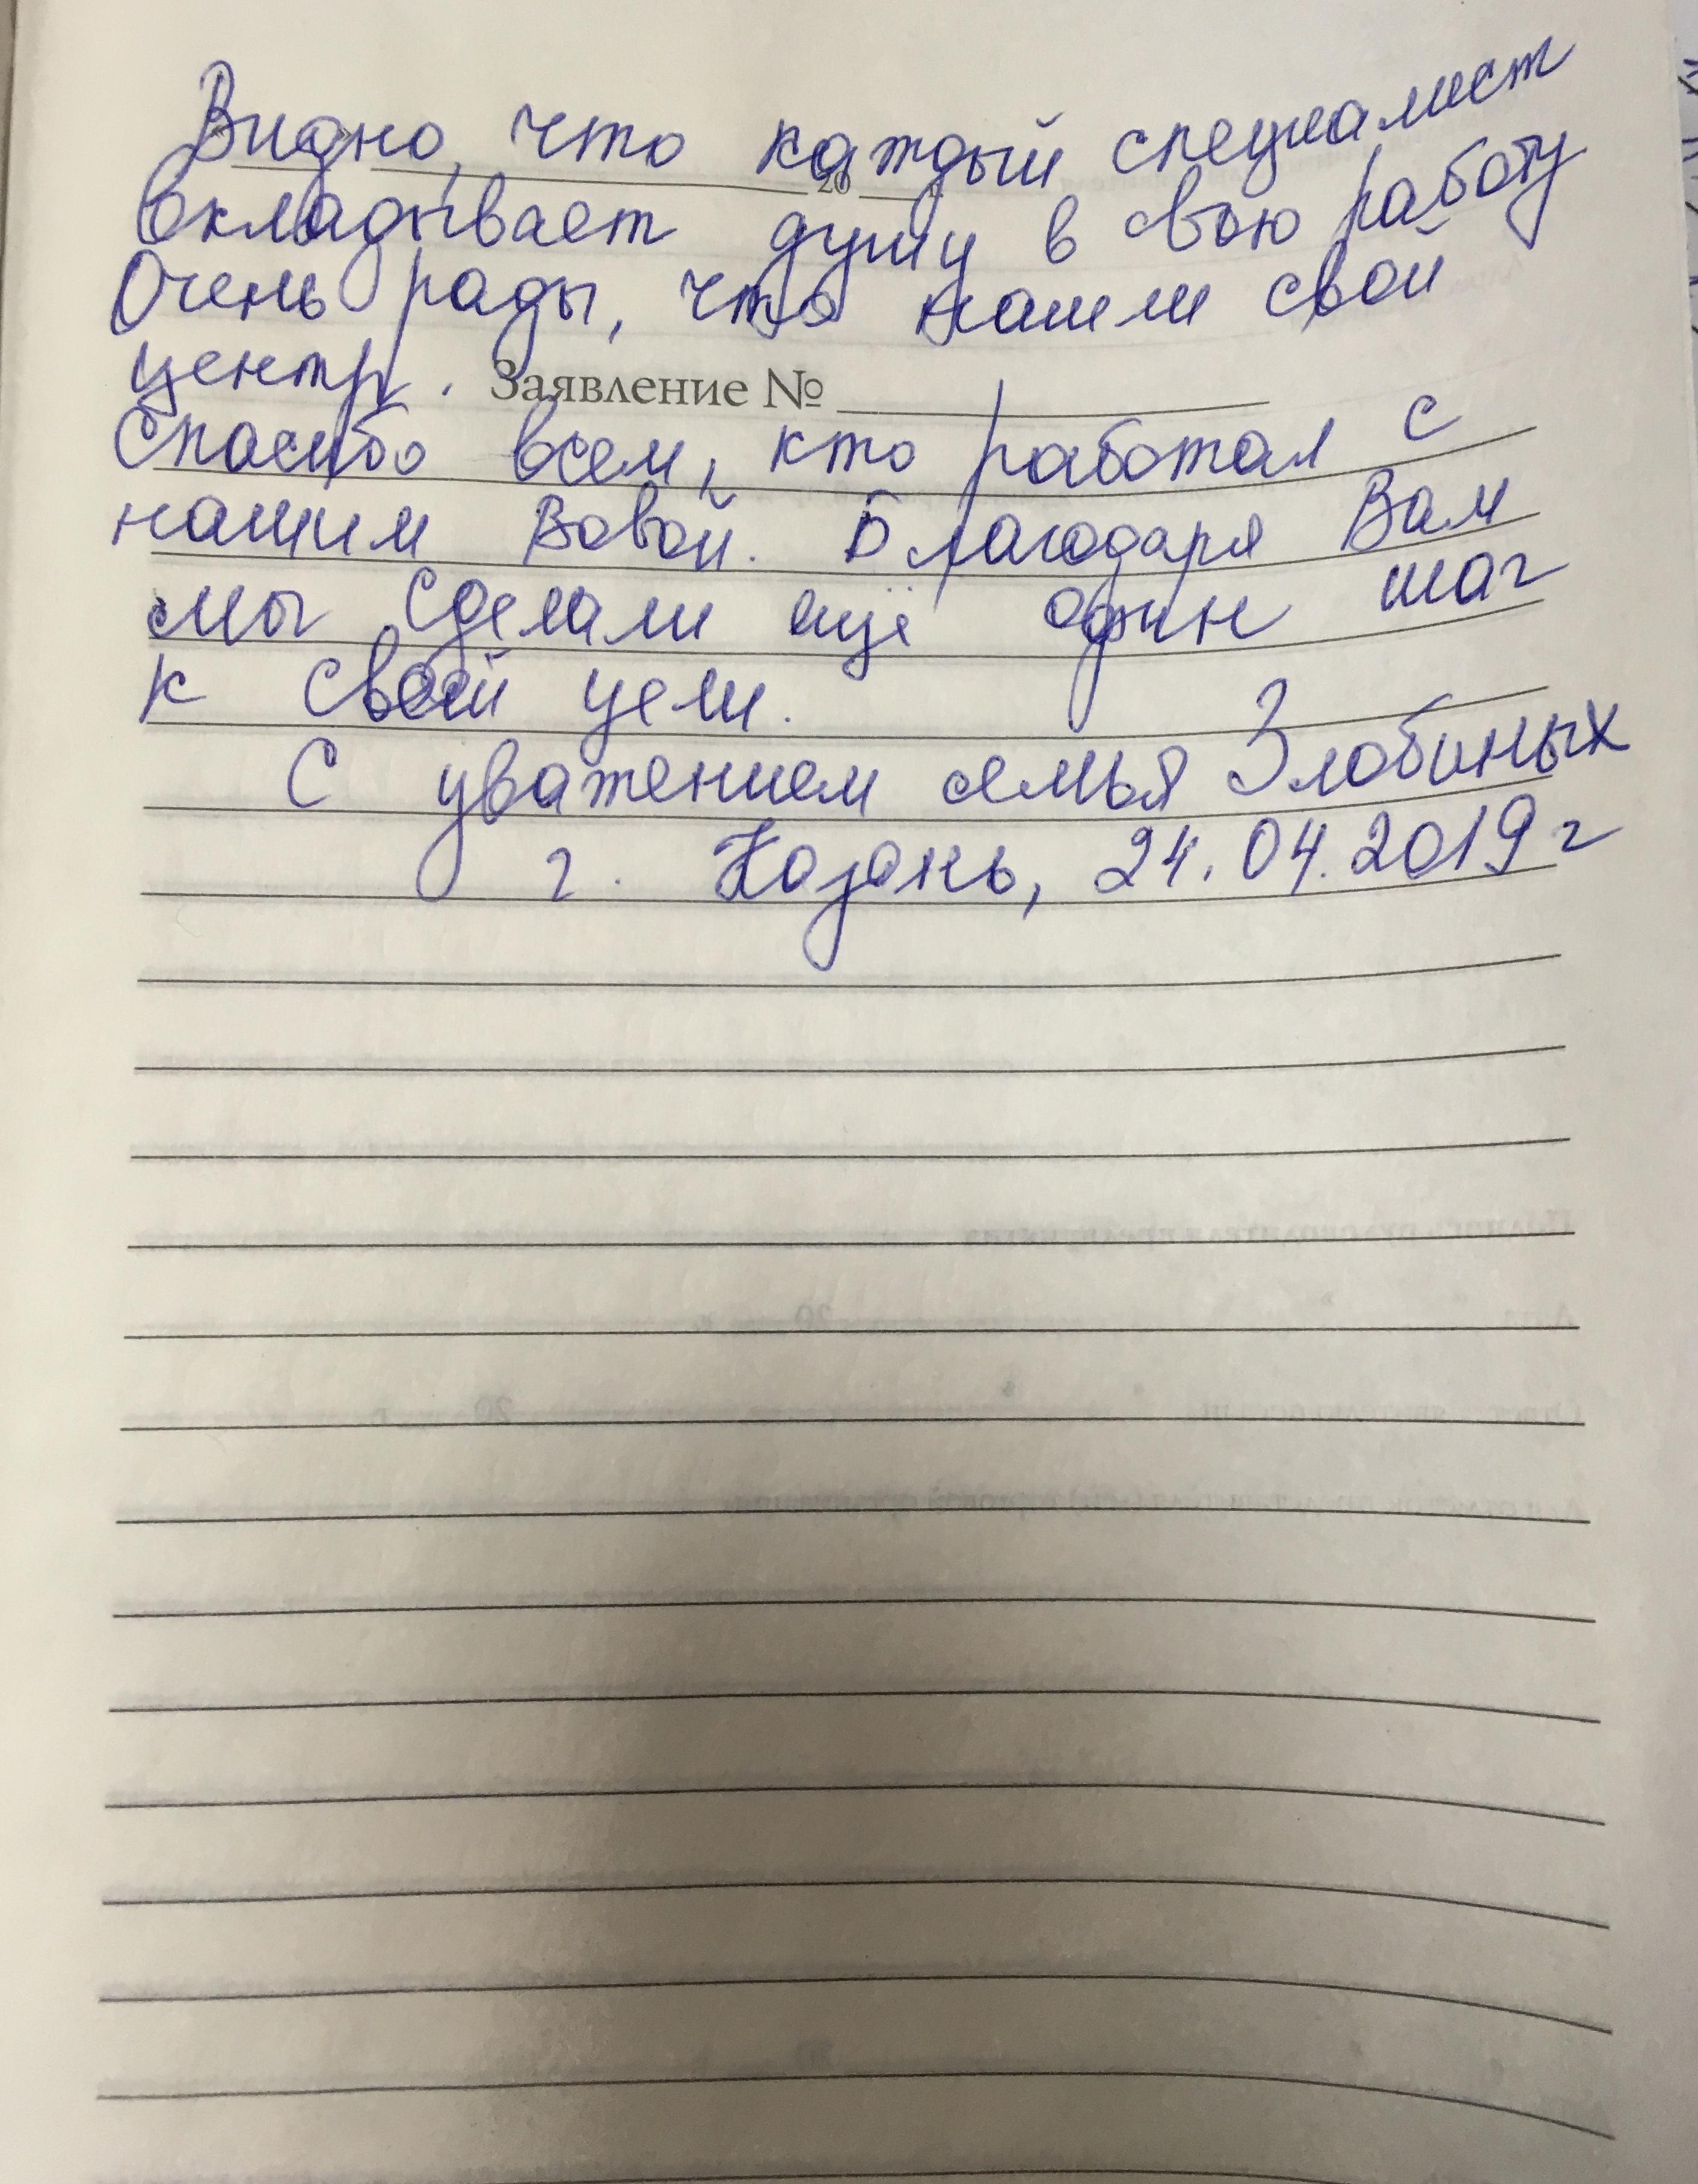 Видно, что каждый специалист
20
вкладывает душу в свою работу
Очень рады, что нашли свой
центр.
Заявление №
Спасибо всем, кто работал с
нашим Вовой. Благодаря Вам
мы сделали ещё один шаг
к своей цели.
С уважением семья Злобиных
г. Казань, 24.04.2019 г